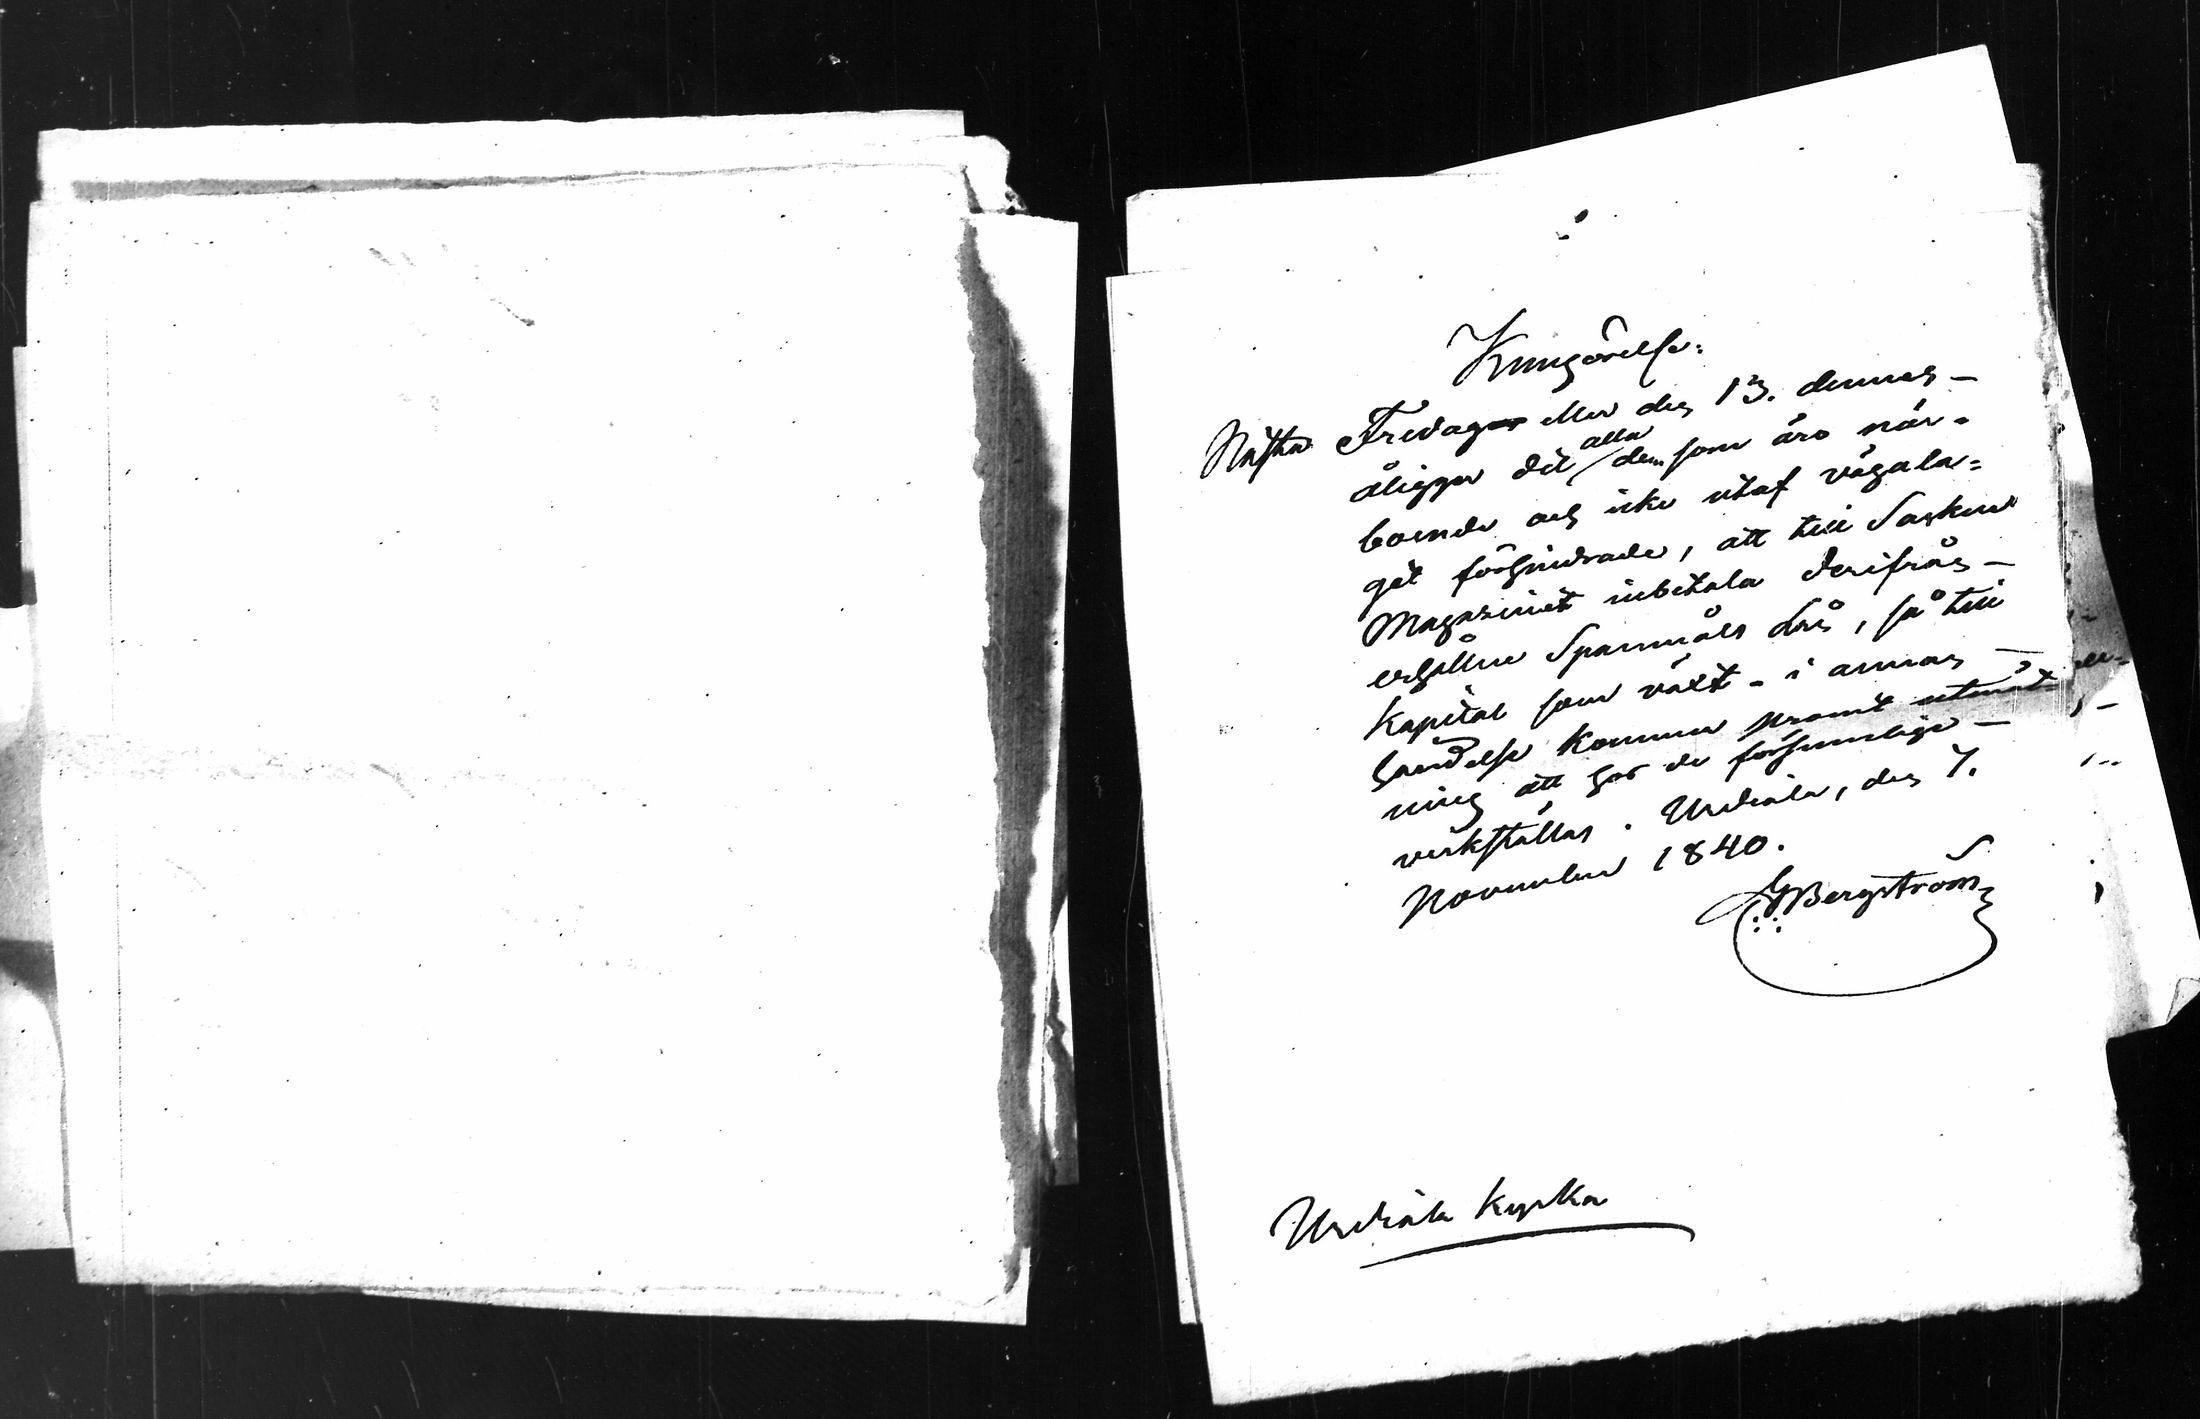 Kungörelse:
Nästa Fredag eller den 13. dennes -
åligger det alla dem som äro när-
boende och icke utaf vägala-
get förhindrade, att till Socken
Magasinet inbetala derifrån -
erhållne Spannmåls lån, så till
Kapital som växt - i annan -
händelse kommer promt utmät-
ning att hos de försumlige -
verkställas. Urdiala, den 7.
November 1840.
Bergström
Urdiala Kyrka